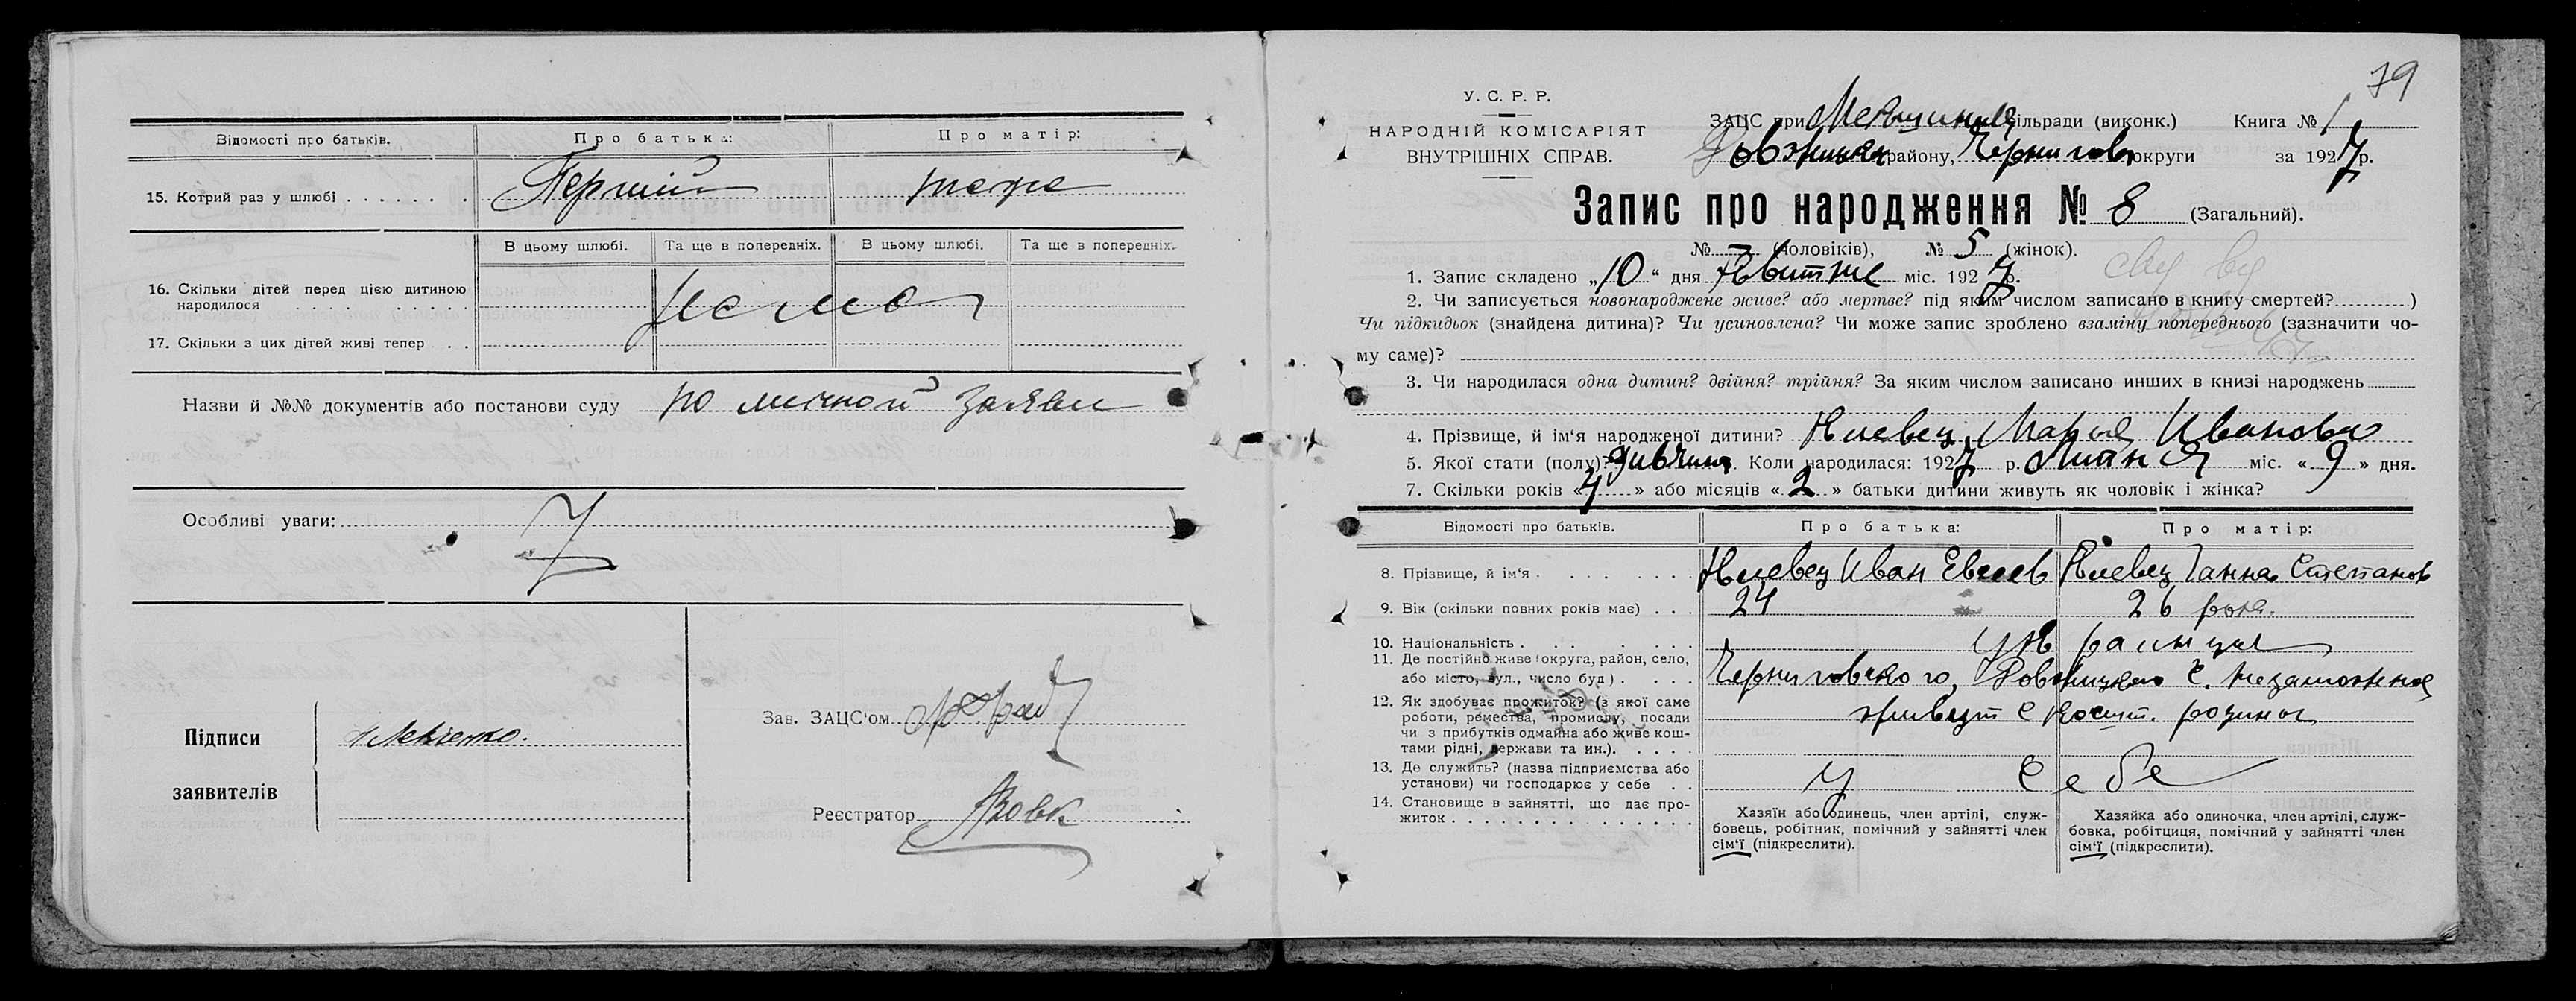 Відомості про батьків. Про батька: Про матір:
15. Котрий раз у шлюбі Перший теже
В цьому шлюбі. Та ще в попередніх. В цьому шлюбі. Та ще в попередніх.
16. Скільки дітей перед цією дитиною
народилося
нема
17. Скільки з цих дітей живі тепер
Назви й №№ документів або постанови суду по мичной заяви
Особливі уваги:
Підписи
заявителів
Зав. ЗАЦС'ом
Реєстратор Вовк
79
У. С. Р. Р.
НАРОДНІЙ КОМІСАРІЯТ
ВНУТРІШНІХ СПРАВ.
ЗАЦС при сільради (виконк.) Книга № 1
району, Чернигов округи за 1927 р.
Запис про народження № 8 (Загальний).
№ (чоловіків), № 5 (жінок).
1. Запис складено „10“ дня Квитне міс. 1927 р.
2. Чи записується новонароджене живе? або мертве? під яким числом записано в книгу смертей? )
Чи підкидьок (знайдена дитина)? Чи усиновлена? Чи може запис зроблено взаміну попереднього (зазначити чо-
му саме)?
3. Чи народилася одна дитин? двійня? трійня? За яким числом записано инших в книзі народжень
4. Прізвище, й ім'я народженої дитини? Киевец Мария Иванова
5. Якої стати (полу)? дивчина Коли народилася: 1927 р. міс. « 9 » дня.
7. Скільки років «4» або місяців «2» батьки дитини живуть як чоловік і жінка?
Відомості про батьків. Про батька: Про матір:
8. Прізвище, й ім'я Киевец Иван Евсеев Киевец Ганна Степанов
9. Вік (скільки повних років має) 24 26 рока.
10. Національність украинци
11. Де постійно живе (округа, район, село,
або місто, вул., число буд) Черниговского,
12. Як здобуває прожиток? (з якої саме
роботи, ремества, промислу, посади
чи з прибутків одмайна або живе кош-
тами рідні, держави та ин.).
живут с родины
13. Де служить? (назва підприємства або
установи) чи господарює у себе
у себе
14. Становище в зайнятті, що дає про-
житок
Хазяїн або одинець, член артілі, служ-
бовець, робітник, помічний у зайнятті член
сім'ї (підкреслити).
Хазяйка або одиночка, член артілі, служ-
бовка, робітциця, помічний у зайнятті член
сім'ї (підкреслити).